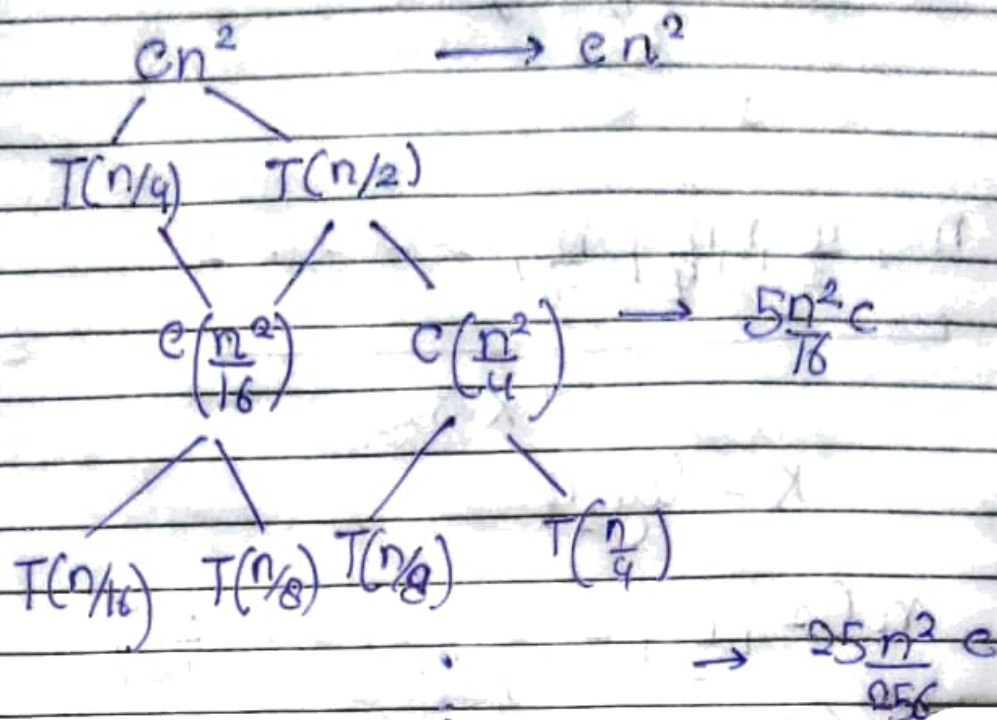 cn² → cn²
T(n/4) T(n/2)
c(n²/16) c(n²/4) → 5n²/16 c
T(n/16) T(n/8) T(n/8) T(n/4)
→ 25n²/256 c